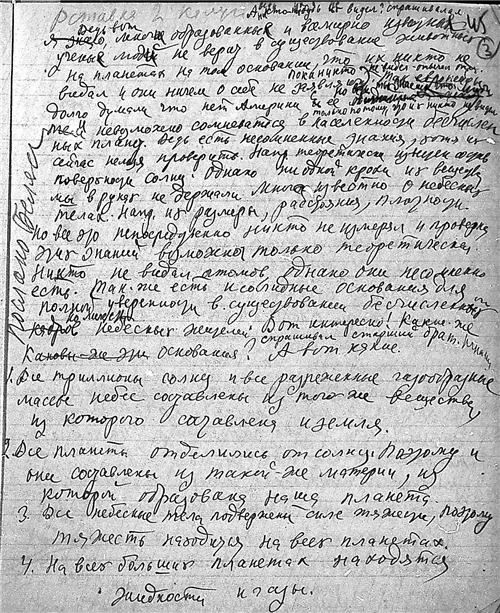 Вставка 2
А кто-нибудь их видел? спрашивал
Ведь вот
я знаю, многие образованные и всемирно известные
учёные люди не верят в существование животных
на планетах на том основании, что их никто не
видал и они ничем о себе не заявляли. Так европейцы
долго думали что нет Америки
только потому, что их никто не видал
невозможно сомневаться в населенности бесчислен
ных планет. Ведь есть несомненные знания, хотя и
сейчас нельзя проверить. Напр. теоретически
поверхности солнц однако ни одной крохи их вещества
мы в руках не держали. Много известно о небесных
телах. Напр. их размеры, расстояния, плотности
но все это непосредственно никто не измерял и проверка
этих знаний возможна только теоретическая
Никто не видал атомов, однако они несомненно
есть. Так же есть и солидные основания для
полной уверенности в существовании бесчисленных
небесных жителей. Вот интересно! Какие же
спрашивал старший брат.
Каковы-же эти основания? А вот какие.
1. Все триллионы солнц и все разреженные газообразные
массы небес составлены из того же вещества,
из которого составлена и земля.
2. Все планеты отделились от солнц. Поэтому и
они составлены из такой-же материи, из
которой образована наша планета.
3. Все небесные тела подвержены силе тяжести, поэтому
тяжесть находится на всех планетах.
4. На всех больших планетах находятся
жидкости и газы.
Послано Беляев